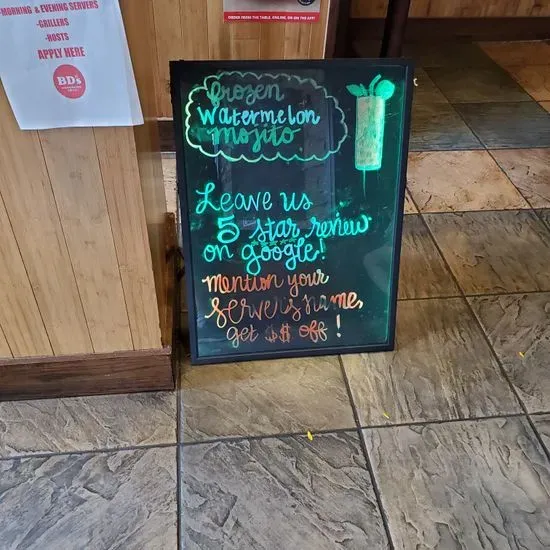 MORNING & EVENING SERVERS
-GRILLERS
-HOSTS
APPLY HERE
BD's
ORDER FROM THE TABLE, ONLINE, OR ON THE APP!
frozen
Watermelon
mojito
Leave us
5 star review
on google!
mention your
server's name,
get $$ off!